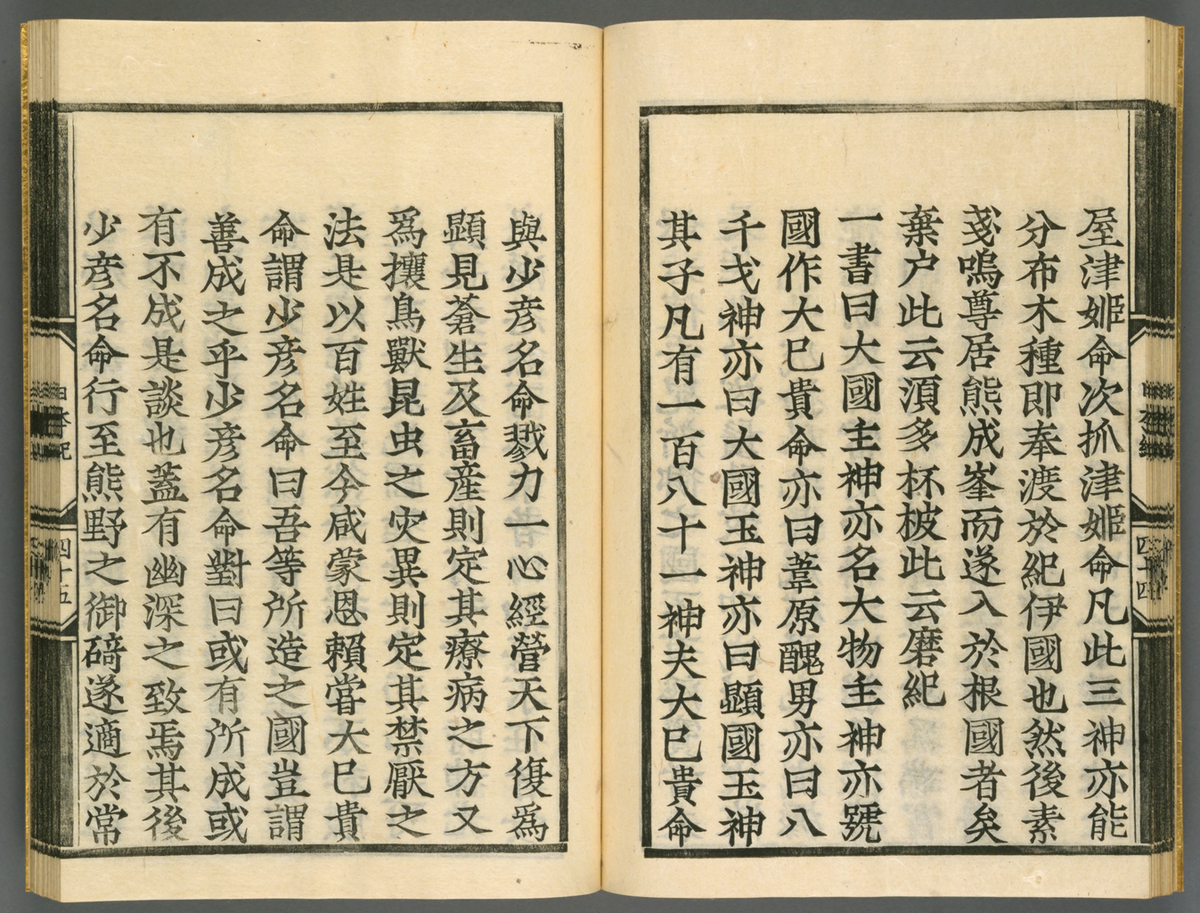 屋津姬命次抓津姬命凡此三神亦能
分布木種即奉渡於紀伊國也然後素
戔嗚尊居熊成峯而遂入於根國者矣
棄户此云須多杯柀此云磨紀
一書曰大國主神亦名大物主神亦號
國作大巳貴命亦曰葦原醜男亦曰八
千戈神亦曰大國玉神亦曰顯國玉神
其子凡有一百八十一神夫大巳貴命
四十四
與少彥名命戮力一心經營天下復爲
顯見蒼生及畜産則定其療病之方又
爲攘鳥獸昆虫之灾異則定其禁厭之
法是以百姓至今咸蒙恩賴嘗大巳貴
命謂少彥名命曰吾等所造之國豈謂
善成之乎少彥名命對曰或有所成或
有不成是談也蓋有幽深之致焉其後
少彥名命行至熊野之御碕遂適於常
四十五